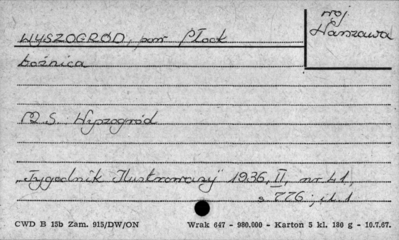 woj.
Warszawa
WYSZOGRÓD, pow. Płock
bożnica
M.S. Wyszogród
„Tygodnik Ilustrowany" 1936, II, nr 41,
s. 776; il. 1
CWD B 15b Zam. 915/DW/ON Wrak 647 - 980.000 - Karton 5 kl. 180 g - 10.7.67.